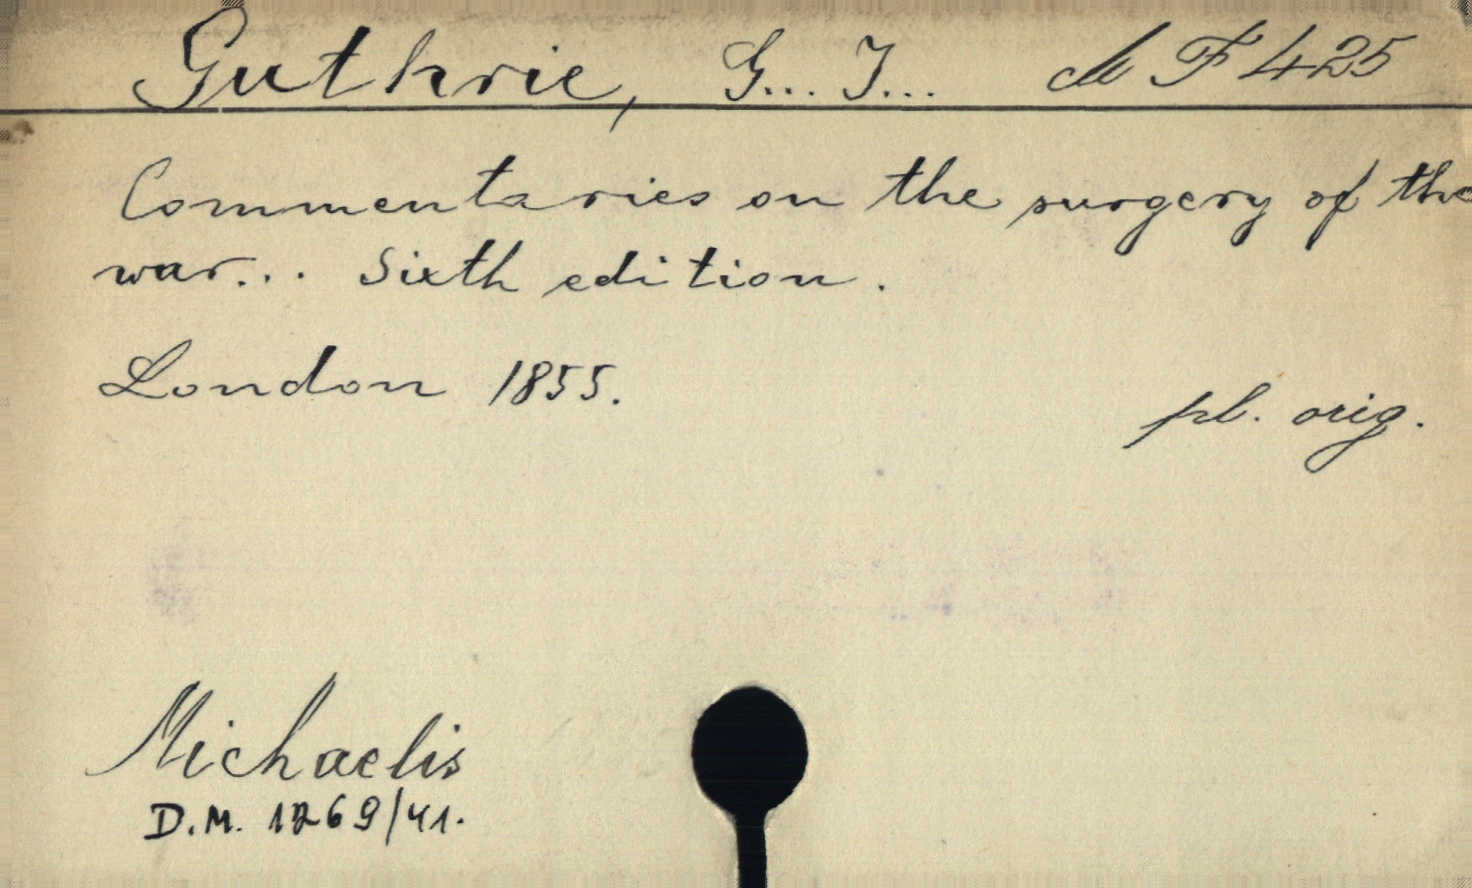 Guthrie, G... J... M F 425
Commentaries on the surgery of the
war... Sixth edition.
London 1855.
pl. orig.
Michaelis
D.M. 1269/41.